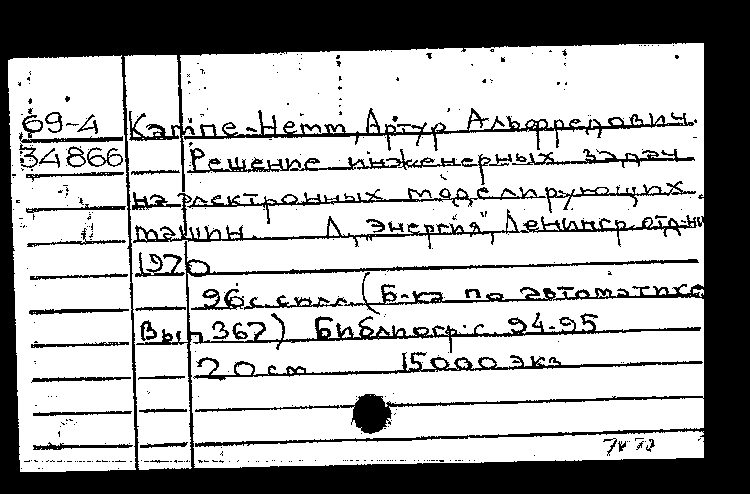 69-4 Каппе-Немм, Артур Альфредович.
34866 Решение инженерных задач
на электронных моделирующих
машин. Л, „Энергия", Ленингр. отд-ни
1970
96 с. с илл. (Б-ка по автоматике
Вып 367) Библиогр: с. 94-95
20 см 15000 экз